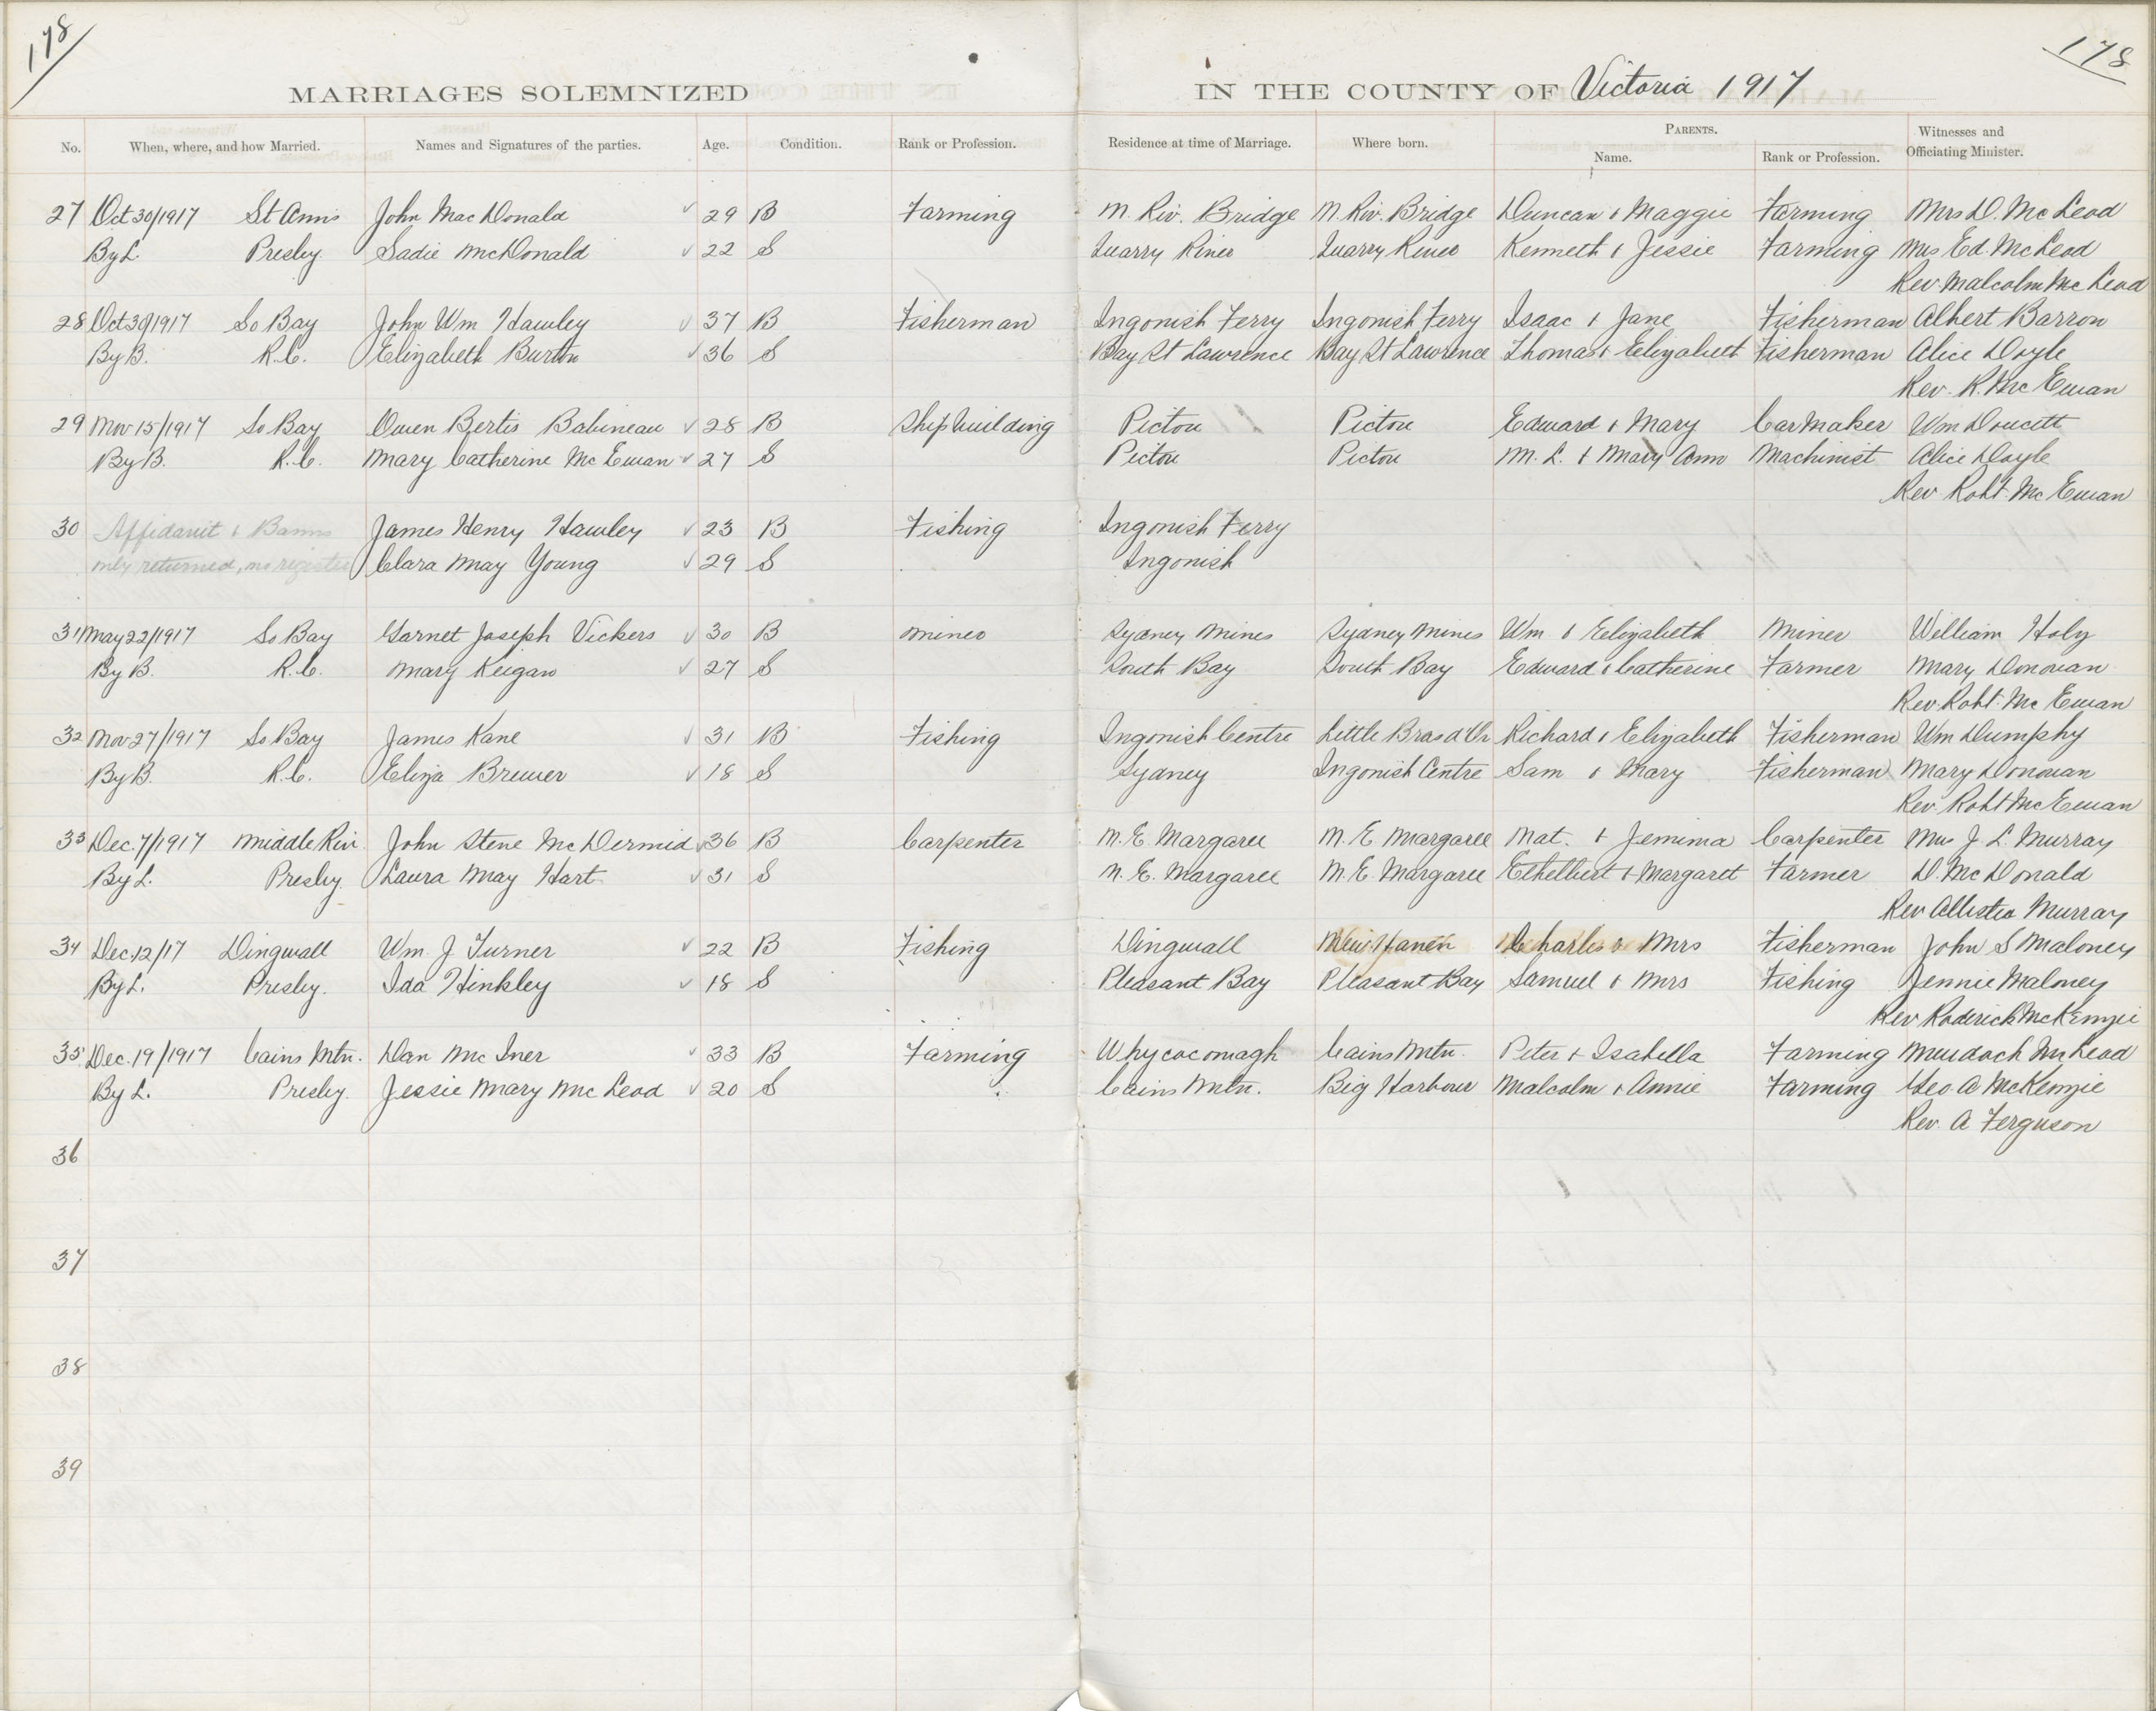 178 178
MARRIAGES SOLEMNIZED IN THE COUNTY OF Victoria 1917
No. When, where, and how Married. Names and Signatures of the parties. Age. Condition. Rank or Profession. Residence at time of Marriage. Where born. PARENTS. Name. Rank or Profession. Witnesses and Officiating Minister.
27 Oct 30/1917 St Anns John MacDonald 29 B Farming M. Riv. Bridge M. Riv. Bridge Duncan & Maggie Farming Mrs D. McLeod
By L. Presby. Sadie McDonald 22 S Quarry River Quarry River Kenneth & Jessie Farming Mrs Ed. McLeod
Rev. Malcolm McLeod
28 Oct 30/1917 So Bay John Wm Hawley 37 B Fisherman Ingonish Ferry Ingonish Ferry Isaac & Jane Fisherman Albert Barron
By B. R.C. Elizabeth Burton 36 S Bay St Lawrence Bay St Lawrence Thomas & Elizabeth Fisherman Alice Doyle
Rev. R. McEwan
29 Nov 15/1917 So Bay Owen Bertis Babineau 28 B Shipbuilding Pictou Pictou Edward & Mary Car Maker Wm Doucett
By B. R.C. Mary Catherine McEwan 27 S Pictou Pictou M. L. & Mary Ann Machinist Alice Doyle
Rev Robt McEwan
30 Affidavit & Banns James Henry Hawley 23 B Fishing Ingonish Ferry
only returned, no register Clara May Young 29 S Ingonish
31 May 22/1917 So Bay Garnet Joseph Vickers 30 B Miner Sydney Mines Sydney Mines Wm & Elizabeth Miner William Holy
By B. R.C. Mary Keigan 27 S South Bay South Bay Edward & Catherine Farmer Mary Donovan
Rev. Robt. McEwan
32 Nov 27/1917 So Bay James Kane 31 B Fishing Ingonish Centre Little Bras d'Or Richard & Elizabeth Fisherman Wm Dumphy
By B. R.C. Eliza Brewer 18 S Sydney Ingonish Centre Sam & Mary Fisherman Mary Donovan
Rev. Robt McEwan
33 Dec. 7/1917 Middle Riv. John Stene McDermid 36 B Carpenter N. E. Margaree N. E Margaree Mat. & Jemima Carpenter Mrs J. L. Murray
By L. Presby. Laura May Hart 31 S N. E. Margaree N. E. Margaree Ethelbert & Margaret Farmer D. McDonald
Rev Allister Murray
34 Dec. 12/17 Dingwall Wm. J Turner 22 B Fishing Dingwall New Haven Charles & Mrs Fisherman John S Maloney
By L. Presby. Ida Hinkley 18 S Pleasant Bay Pleasant Bay Samuel & Mrs Fishing Jennie Maloney
Rev Roderick McKenzie
35 Dec. 19/1917 Cains Mtn. Dan McIver 33 B Farming Whycocomagh Cains Mtn. Peter & Isabella Farming Murdoch McLeod
By L. Presby. Jessie Mary McLeod 20 S Cains Mtn. Big Harbour Malcolm & Annie Farming Geo A McKenzie
Rev. A Ferguson
36
37
38
39